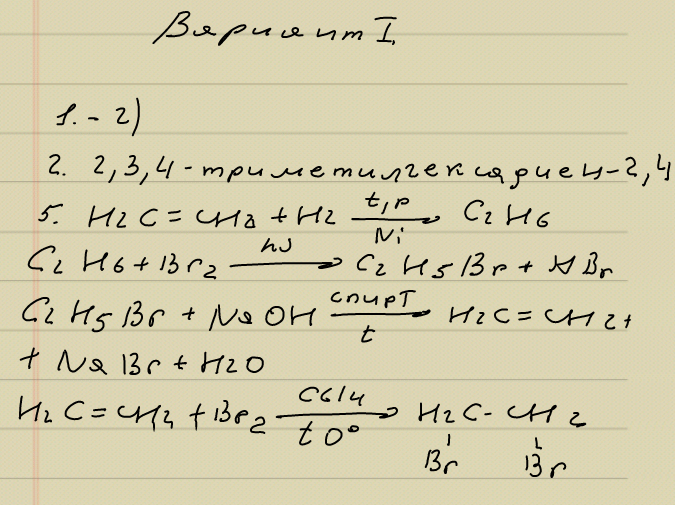 Вариант I.
1. - 2)
2. 2,3,4-триметилгексадиен-2,4
5. H2C=CH2+H2 t,p Ni C2H6
C2H6+Br2 hν C2H5Br+HBr
C2H5Br+NaOH спирт t H2C=CH2+
+ NaBr+H2O
H2C=CH2+Br2 CCl4 t 0° H2C-CH2
Br Br